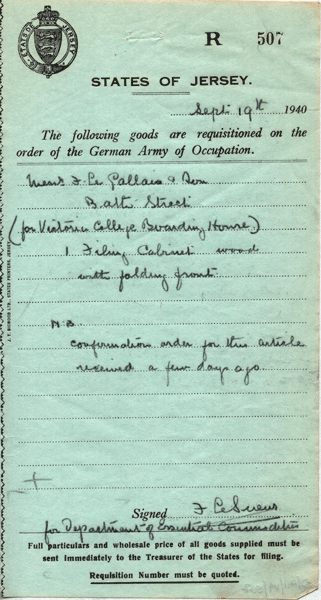 STATES OF JERSEY
R 507
STATES OF JERSEY.
Sept 19th 1940
The following goods are requisitioned on the
order of the German Army of Occupation.
Messrs F Le Gallais & Son
Bath Street
(for Victoria College Boarding House)
1 Filing Cabinet wood
with folding front
N.B
Confirmation order for this article
received a few days ago
Signed F Le Sueur
for Department of Essential Commodities
Full particulars and wholesale price of all goods supplied must be
sent immediately to the Treasurer of the States for filing.
Requisition Number must be quoted.